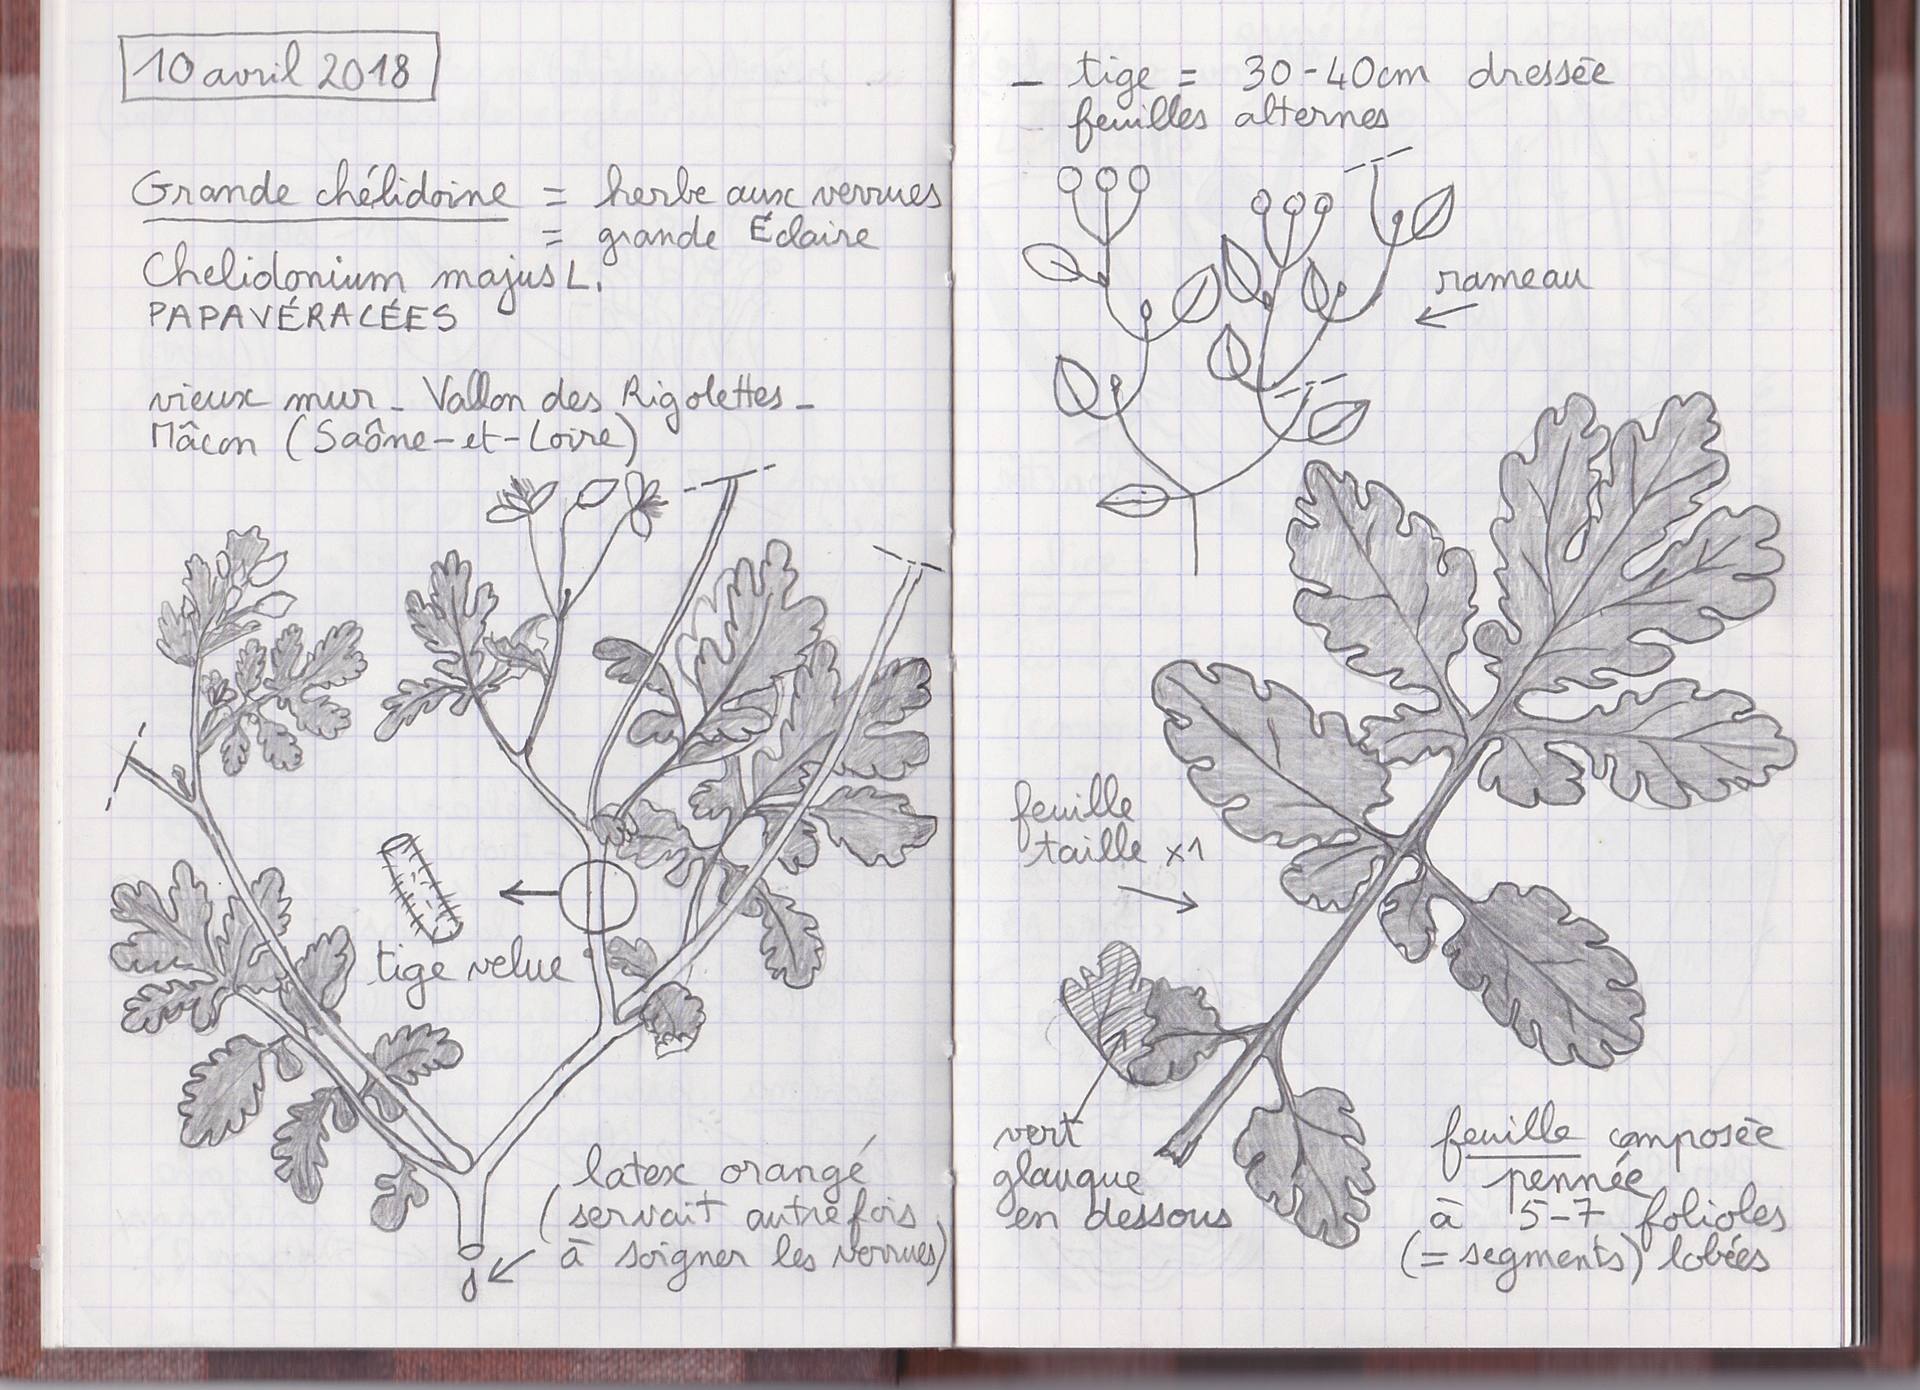 10 avril 2018
Grande chélidoine = herbe aux verrues
= grande Éclaire
Chelidonium majus L.
PAPAVÉRACÉES
vieux mur - Vallon des Rigolettes -
Mâcon (Saône-et-Loire)
tige velue
latex orangé
(servait autrefois
à soigner les verrues)
- tige = 30-40cm dressée
- feuilles alternes
rameau
feuille
taille x1
vert
glauque
en dessous
feuille composée
pennée
à 5-7 folioles
(= segments) lobées